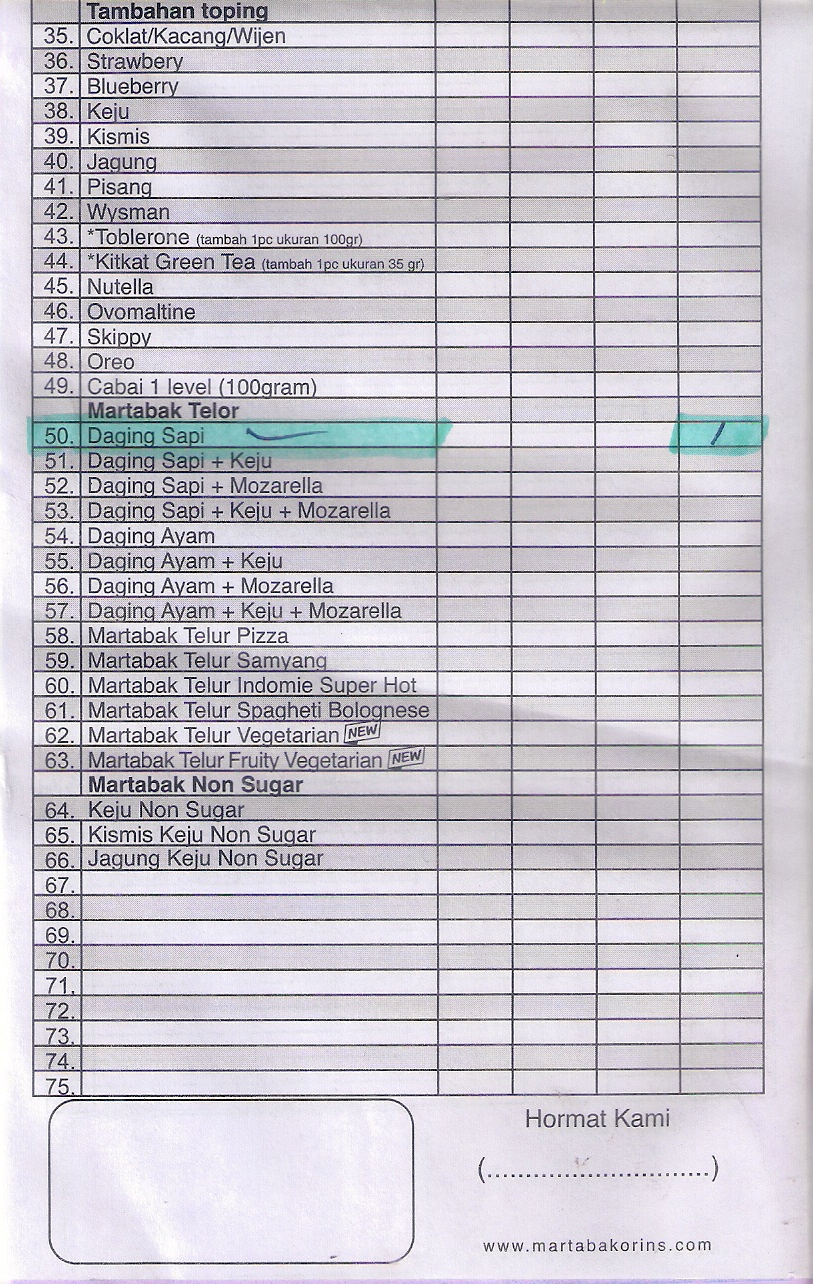 Tambahan toping
35. Coklat/Kacang/Wijen
36. Strawbery
37. Blueberry
38. Keju
39. Kismis
40. Jagung
41. Pisang
42. Wysman
43. *Toblerone (tambah 1pc ukuran 100gr)
44. *Kitkat Green Tea (tambah 1pc ukuran 35 gr)
45. Nutella
46. Ovomaltine
47. Skippy
48. Oreo
49. Cabai 1 level (100gram)
Martabak Telor
50. Daging Sapi 1
51. Daging Sapi + Keju
52. Daging Sapi + Mozarella
53. Daging Sapi + Keju + Mozarella
54. Daging Ayam
55. Daging Ayam + Keju
56. Daging Ayam + Mozarella
57. Daging Ayam + Keju + Mozarella
58. Martabak Telur Pizza
59. Martabak Telur Samyang
60. Martabak Telur Indomie Super Hot
61. Martabak Telur Spagheti Bolognese
62. Martabak Telur Vegetarian NEW
63. Martabak Telur Fruity Vegetarian NEW
Martabak Non Sugar
64. Keju Non Sugar
65. Kismis Keju Non Sugar
66. Jagung Keju Non Sugar
67.
68.
69.
70.
71.
72.
73.
74.
75.
Hormat Kami
(..............................)
www.martabakorins.com